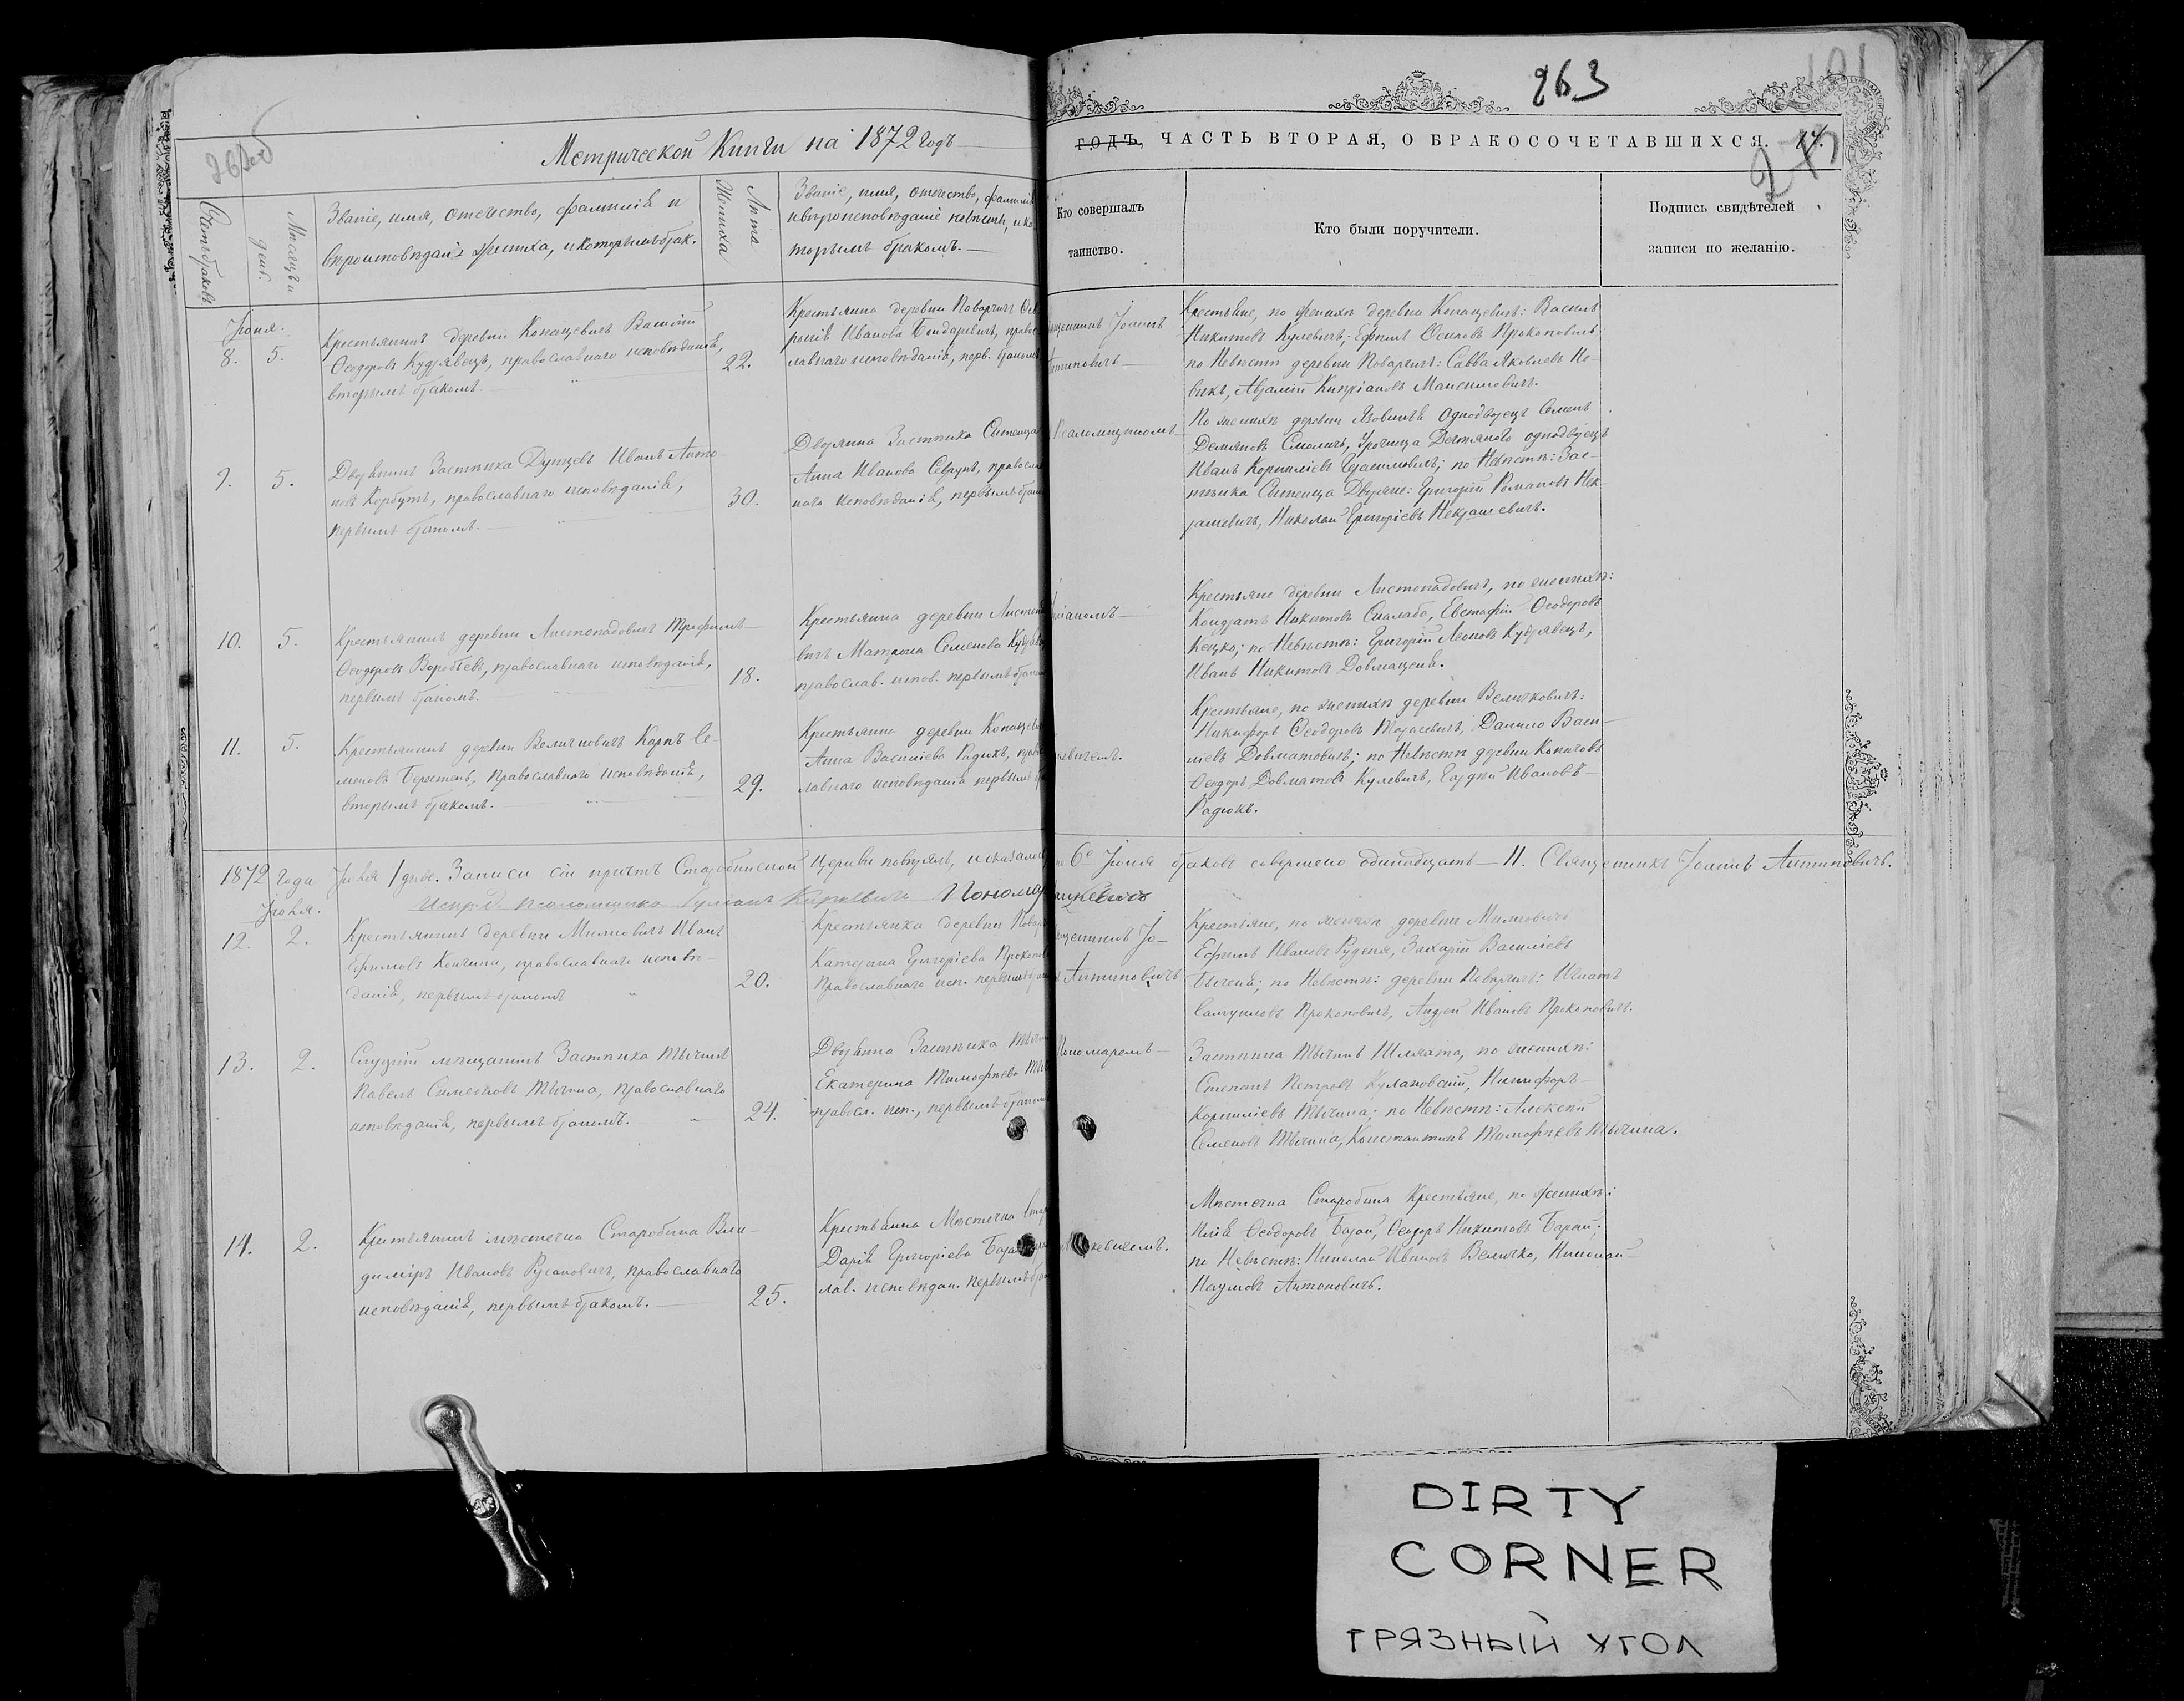 263
Метрической Книги на 1872 годъ
годъ, ЧАСТЬ ВТОРАЯ, О БРАКОСОЧЕТАВШИХСЯ.
Счетъ браковъ
Месяцъ и день.
Званіе, имя, отечество, фамилія и
вероисповеданіе жениха, и которымъ брак.
Лета
Жениха
Званіе, имя, отечество, фамилія
и вероисповеданіе невесты, и ко-
торымъ бракомъ.
Кто совершалъ
таинство.
Кто были поручители.
Подпись свидѣтелей
записи по желанію.
Іюня.
8. 5.
Крестьянинъ деревни Копацевичъ Василій
Ѳеодоровъ Кудрявецъ, православнаго исповѣданія,
вторымъ бракомъ.
22.
Крестьянка деревни Поварчичъ
Иванова Бондаревичъ, правос
лавнаго исповѣданія, перв. бракомъ
Іоаннъ
Крестьяне, по женихѣ деревни Копацевичъ: Василь
Никитовъ Кулевичъ, Ефимъ Осиповъ Прокоповичъ
по Невѣстѣ деревни Поварчичъ: Савва Яковлевъ Но-
викъ, Авраамій Кипріановъ Максимовичъ.
9. 5.
Дворянинъ Застѣнка Дунцевъ Иванъ Анто-
новъ Корбутъ, православнаго исповѣданія,
первымъ бракомъ.
30.
Дворянка Застѣнка Ситенца
Анна Иванова Севрукъ, правосла
наго исповѣданія, первымъ брако
Псаломщикомъ
По женихѣ деревни Язовинъ Однодворецъ Семенъ
Демяновъ Смоличъ, Урочища однодворецъ
Иванъ Корниліевъ Герасимовичъ; по Невѣстѣ: Зас-
тѣнка Ситенца Дворяне: Григорій Романовъ Нек-
рашевичъ, Николай Григоріевъ Некрашевичъ.
10. 5.
Крестьянинъ деревни Листопадовичъ Трофимъ
Ѳеодоровъ Воробьевъ, православнаго исповѣданія,
первымъ бракомъ.
18.
Крестьянка деревни Листопа
вичъ Матрона Семенова Кудрявец
православ. испов. первымъ брако
Крестьяне деревни Листопадовичъ, по женихѣ:
Кондратъ Никитовъ Скалабо, Евстафій Ѳеодоровъ
Кецко; по Невѣстѣ: Григорій Леоновъ Кудрявецъ,
Иванъ Никитовъ Довмаценя.
11. 5.
Крестьянинъ деревни Величковичъ Карпъ Се-
меновъ Берстень, православнаго исповѣданія,
вторымъ бракомъ.
29.
Крестьянка деревни Копацеви
Анна Василіева Радюкъ, право
лавнаго исповѣданія первымъ
Крестьяне, по женихѣ деревни Величковичъ:
Никифоръ Ѳеодоровъ Тарасевичъ, Данило Васи-
ліевъ Довматовичъ; по Невѣстѣ деревни
Ѳеодоръ Довматовъ Кулевичъ, Гордѣй Ивановъ
Радюкъ.
1872 года Іюля 1 дня. Записи сіи причтъ Старобинской Церкви повѣрялъ, и оказалось
по 6е Іюля браковъ совершено одинадцать — 11. Священникъ Іоаннъ Антиповичъ.
Псаломщикъ Пономарь
Іюля.
12. 2.
Крестьянинъ деревни Милковичъ Иванъ
Ефимовъ Кончина, православнаго исповѣ-
данія, первымъ бракомъ
20.
Крестьянка деревни Повар
Катерина Григоріева Прокопов
православнаго исп. первымъ бр
Іо-
Антиповичъ
Крестьяне, по женихѣ деревни Милковичъ
Ефимъ Ивановъ Руденя, Захарій Василіевъ
Быченя; по Невѣстѣ: деревни Поварчичъ: Игнатъ
Самуиловъ Прокоповичъ, Андрей Ивановъ Прокоповичъ.
13. 2.
Слуцкій мѣщанинъ Застѣнка Тычинъ
Павелъ Симеоновъ Тычина, православнаго
исповѣданія, первымъ бракомъ.
24.
Дворянка Застѣнка Тычин
Екатерина Тимофѣева Ты
правосл. исп., первымъ бракомъ
Пономаремъ
Застѣнка Тычинъ Шляхта, по женихѣ:
Степанъ Петровъ Кулаковскій, Никифоръ
Корниліевъ Тычина; по Невѣстѣ: Алексѣй
Семеновъ Тычина, Константинъ Тимофѣевъ Тычина.
14. 2.
Крестьянинъ мѣстечка Старобина Вла-
димiръ Ивановъ Русановичъ, православнаго
исповѣданія, первымъ бракомъ.
25.
Крестьянка Мѣстечка Стар
Дарія Григоріева
лав. исповѣдан. первымъ бра
Мѣстечка Старобина Крестьяне, по женихѣ:
Илія Ѳеодоровъ Баран, Ѳеодоръ Никитовъ Баран;
по Невѣстѣ: Николай Ивановъ Величко, Николай
Наумовъ Антоновичъ.
DIRTY
CORNER
ГРЯЗНЫЙ УГОЛ